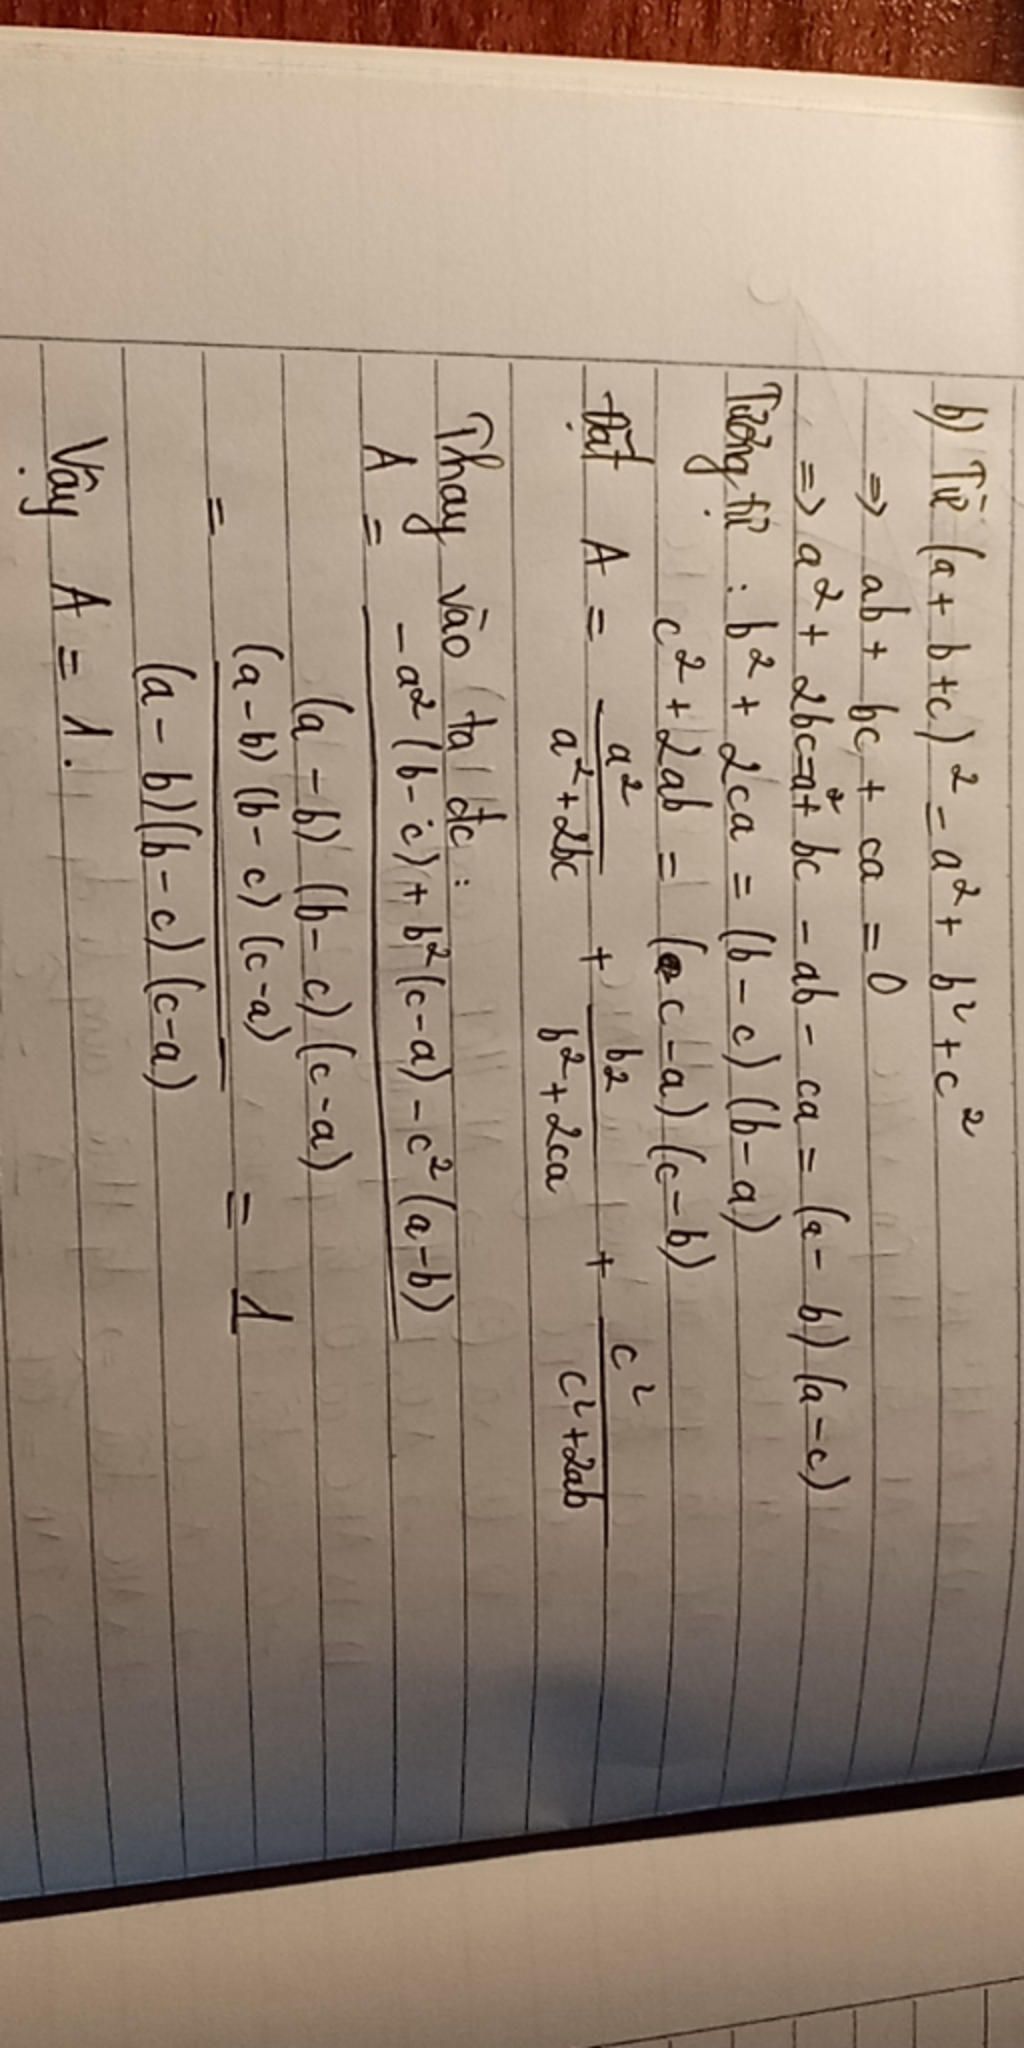 b) Từ (a + b + c)² = a² + b² + c²
=> ab + bc + ca = 0
=> a² + 2bc = a² + bc - ab - ca = (a - b) (a - c)
Tương tự : b² + 2ca = (b - c) (b - a)
c² + 2ab = (c - a) (c - b)
Đặt A = a²/(a² + 2bc) + b²/(b² + 2ca) + c²/(c² + 2ab)
Thay vào ta đc :
A = (- a² (b - c) + b² (c - a) - c² (a - b))/((a - b) (b - c) (c - a))
= ((a - b) (b - c) (c - a))/((a - b) (b - c) (c - a)) = 1
Vậy A = 1.